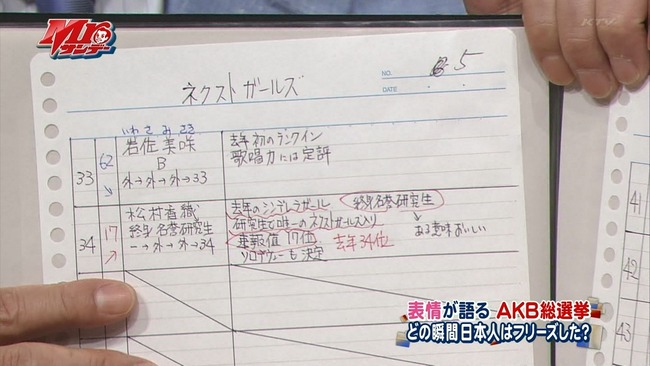 Mr.サンデー
KTV
NO. 5
DATE . .
ネクストガールズ
33
62
いわ さ み さき
岩佐美咲
B
外→外→外→33
去年初のランクイン
歌唱力には定評
34
17
松村香織
終身名誉研究生
ー→外→外→34
去年のシンデレラガール
終身名誉研究生
研究生で唯一のネクストガールズ入り
ある意味おいしい
速報値 17位
去年34位
ソロデビューも決定
41
42
43
表情が語る AKB総選挙
どの瞬間日本人はフリーズした?